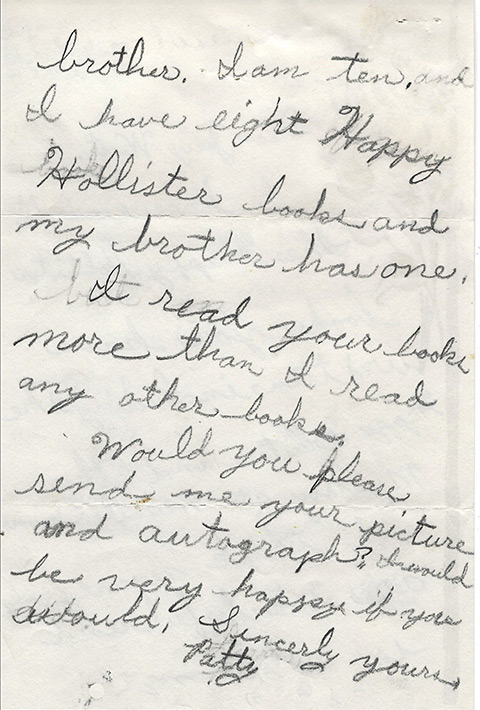 brother. I am ten, and
I have eight Happy
Hollister books and
my brother has one.
I read your books
more than I read
any other books.
Would you please
send me your picture
and autograph? I would
be very happy if you
would. Sincerly yours,
Patty